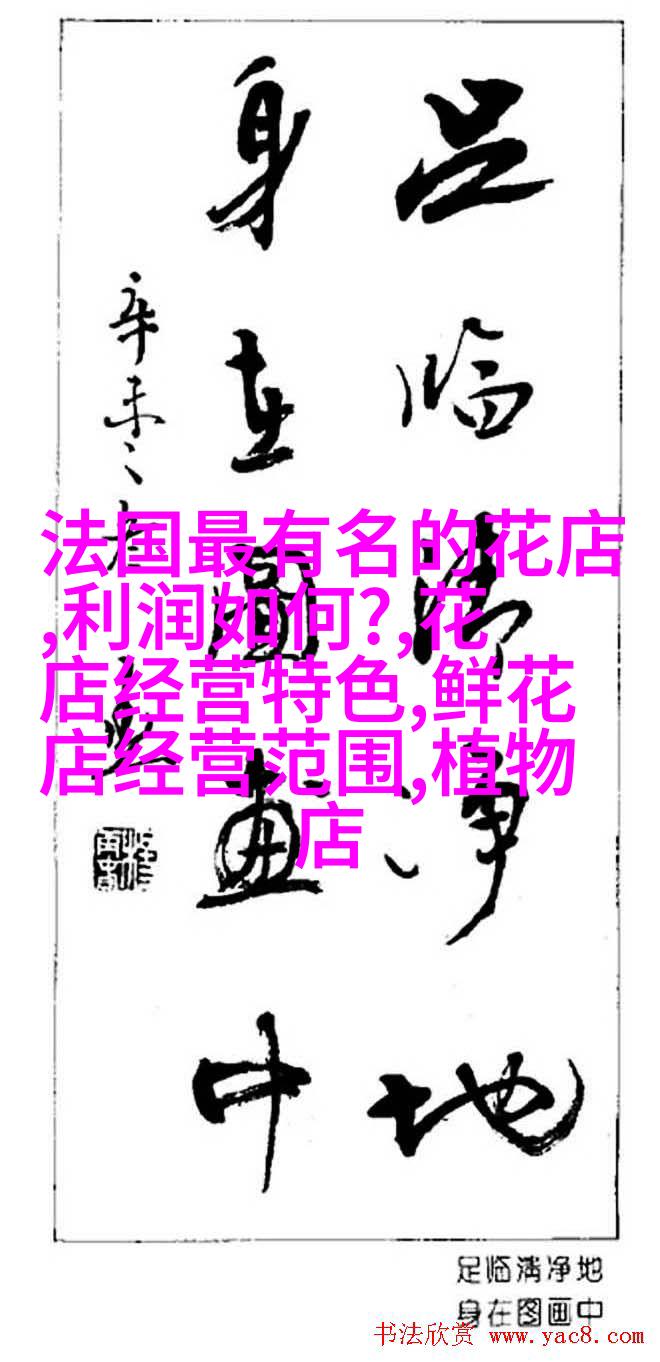 足临清净地
身在图画中
辛未之春
法国最有名的花店
,利润如何?,花
店经营特色,鲜花
店经营范围,植物
店
足临清净地
身在图画中
书法欣赏 www.yac8.com